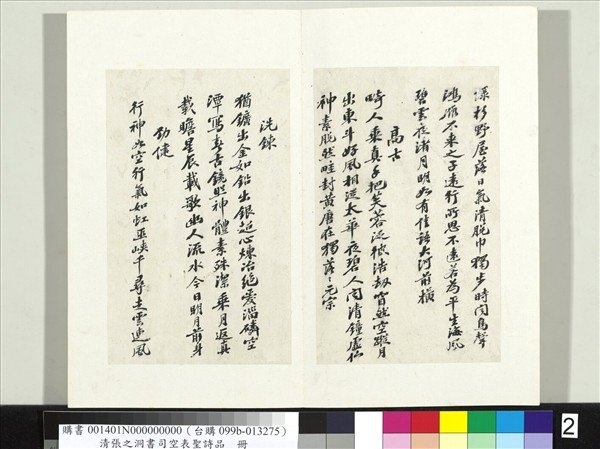 淥杉野屋落日氣清脫巾獨步時聞鳥聲
鴻雁不來之子遠行所思不遠若為平生海風
碧雲夜渚月明如有佳語大河前橫
高古
畸人乘真手把芙蓉泛彼浩劫窅然空蹤月
出東斗好風相從太華夜碧人聞清鐘虛佇
神素脫然畦封黃唐在獨落〻元宗
洗鍊
猶鑛出金如鉛出銀超心煉冶絕愛淄磷空
潭寫春古鏡照神體素儲潔乘月返真
載瞻星辰載歌幽人流水今日明月前身
勁健
行神如空行氣如虹巫峽千尋走雲連風
購書 001401N000000000 (台購 099b-013275)
清張之洞書司空表聖詩品 冊
2